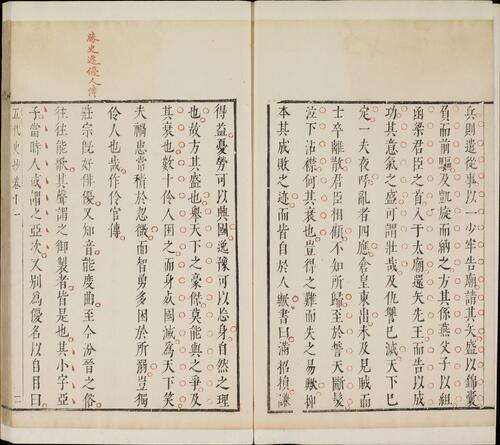 勝史遷優人傳
兵則遣從事以一少牢告廟請其矢盛以錦囊
負而前驅及凱旋而納之方其係燕父子以組
函梁君臣之首入于太廟還矢先王而告以成
功其意氣之盛可謂壯哉及仇讐已滅天下已
定一夫夜呼亂者四應倉皇東出未及見賊而
士卒離散君臣相顧不知所歸至於誓天斷髮
泣下沾襟何其衰也豈得之難而失之易歟抑
本其成敗之迹而皆自於人歟書曰滿招損謙
得益憂勞可以興國逸豫可以忘身自然之理
也故方其盛也舉天下之豪傑莫能與之爭及
其衰也數十伶人困之而身死國滅為天下笑
夫禍患常積於忽微而智勇多困於所溺豈獨
伶人也哉作伶官傳
莊宗旣好俳優又知音能度曲至今汾晉之俗
往往能歌其聲謂之御製者皆是也其小字亞
子當時人或謂之亞次又別為優名以自目曰
五代史抄卷十一 二